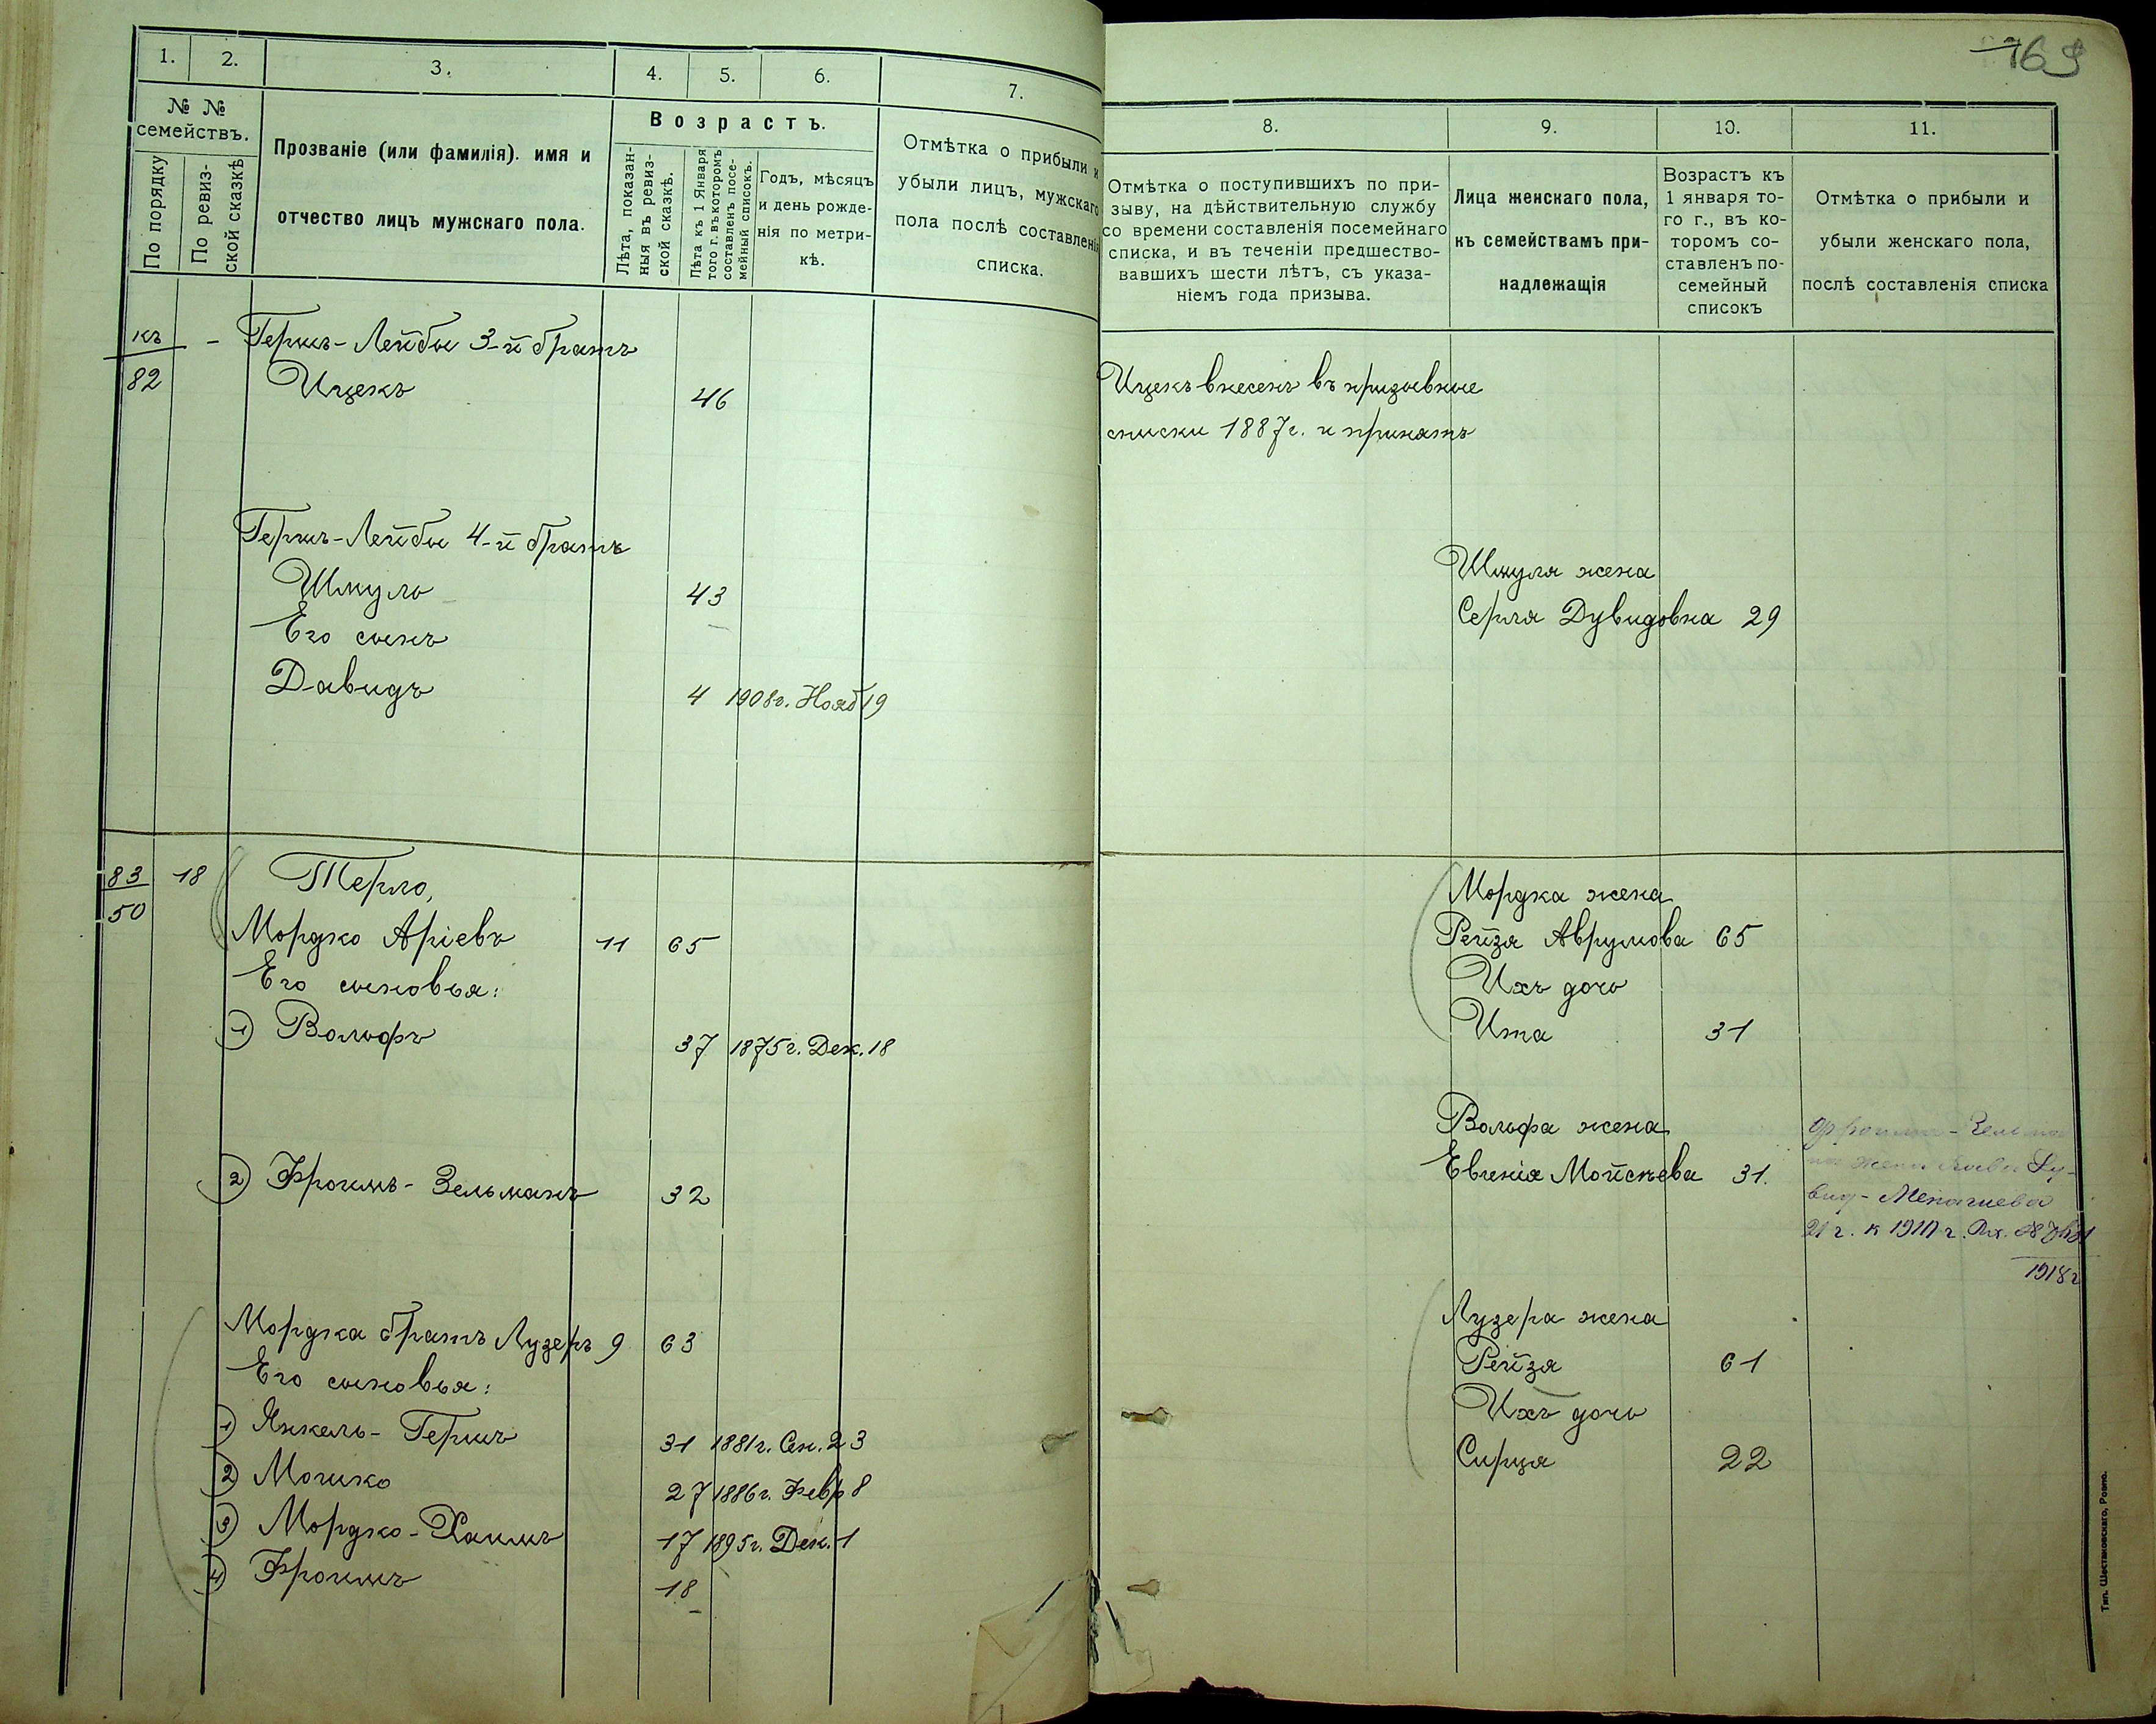 1.
2.
3.
4.
5.
6.
7.
№ №
семействъ.
По порядку
По ревиз-
ской сказкѣ
Прозваніе (или фамилія). имя и
отчество лицъ мужскаго пола.
Возрастъ.
Лѣта, показан-
ныя въ ревиз-
ской сказкѣ.
Лѣта къ 1 Января
того г. въ которомъ
составленъ посе-
мейный списокъ.
Годъ, мѣсяцъ
и день рожде-
нія по метри-
кѣ.
Отмѣтка о прибыли и
убыли лицъ, мужскаго
пола послѣ составленія
списка.
къ - Гершъ-Лейбы 3-й братъ
82 Ицекъ 46
Гершъ-Лейбы 4-й братъ
Шмуль 43
Его сынъ
Давидъ 4 1908г. Нояб 19
83 18 Терло,
50
Мордко Аріевъ 11 65
Его сыновья:
1) Вольфъ 37 1875г. Дек. 18
2) Фроимъ-Зельманъ 32
Мордка братъ Лузеръ 9 63
Его сыновья:
1) Янкель-Гершъ 31 1881г. Сен. 23
2) Мошко 27 1886г. Февр 8
3) Мордко-Хаимъ 17 1895г. Дек. 1
4) Фроимъ 18
169
8.
9.
10.
11.
Отмѣтка о поступившихъ по при-
зыву, на дѣйствительную службу
со времени составленія посемейнаго
списка, и въ теченіи предшество-
вавшихъ шести лѣтъ, съ указа-
ніемъ года призыва.
Лица женскаго пола,
къ семействамъ при-
надлежащія
Возрастъ къ
1 января то-
го г., въ ко-
торомъ со-
ставленъ по-
семейный
списокъ
Отмѣтка о прибыли и
убыли женскаго пола,
послѣ составленія списка
Ицекъ внесенъ въ призывные
списки 1887г. и принятъ
Шмуля жена
Серля Дувидовна 29
Мордка жена
Рейзя Аврумова 65
Ихъ дочь
Ита 31
Вольфа жена
Евгенія Мойсѣева 31.
Фроима-Зельма
жена
вид-
1918г
Лузера жена
Рейзя 61
Ихъ дочь
Сирця 22
Тип. Шестаковскаго, Ровно.